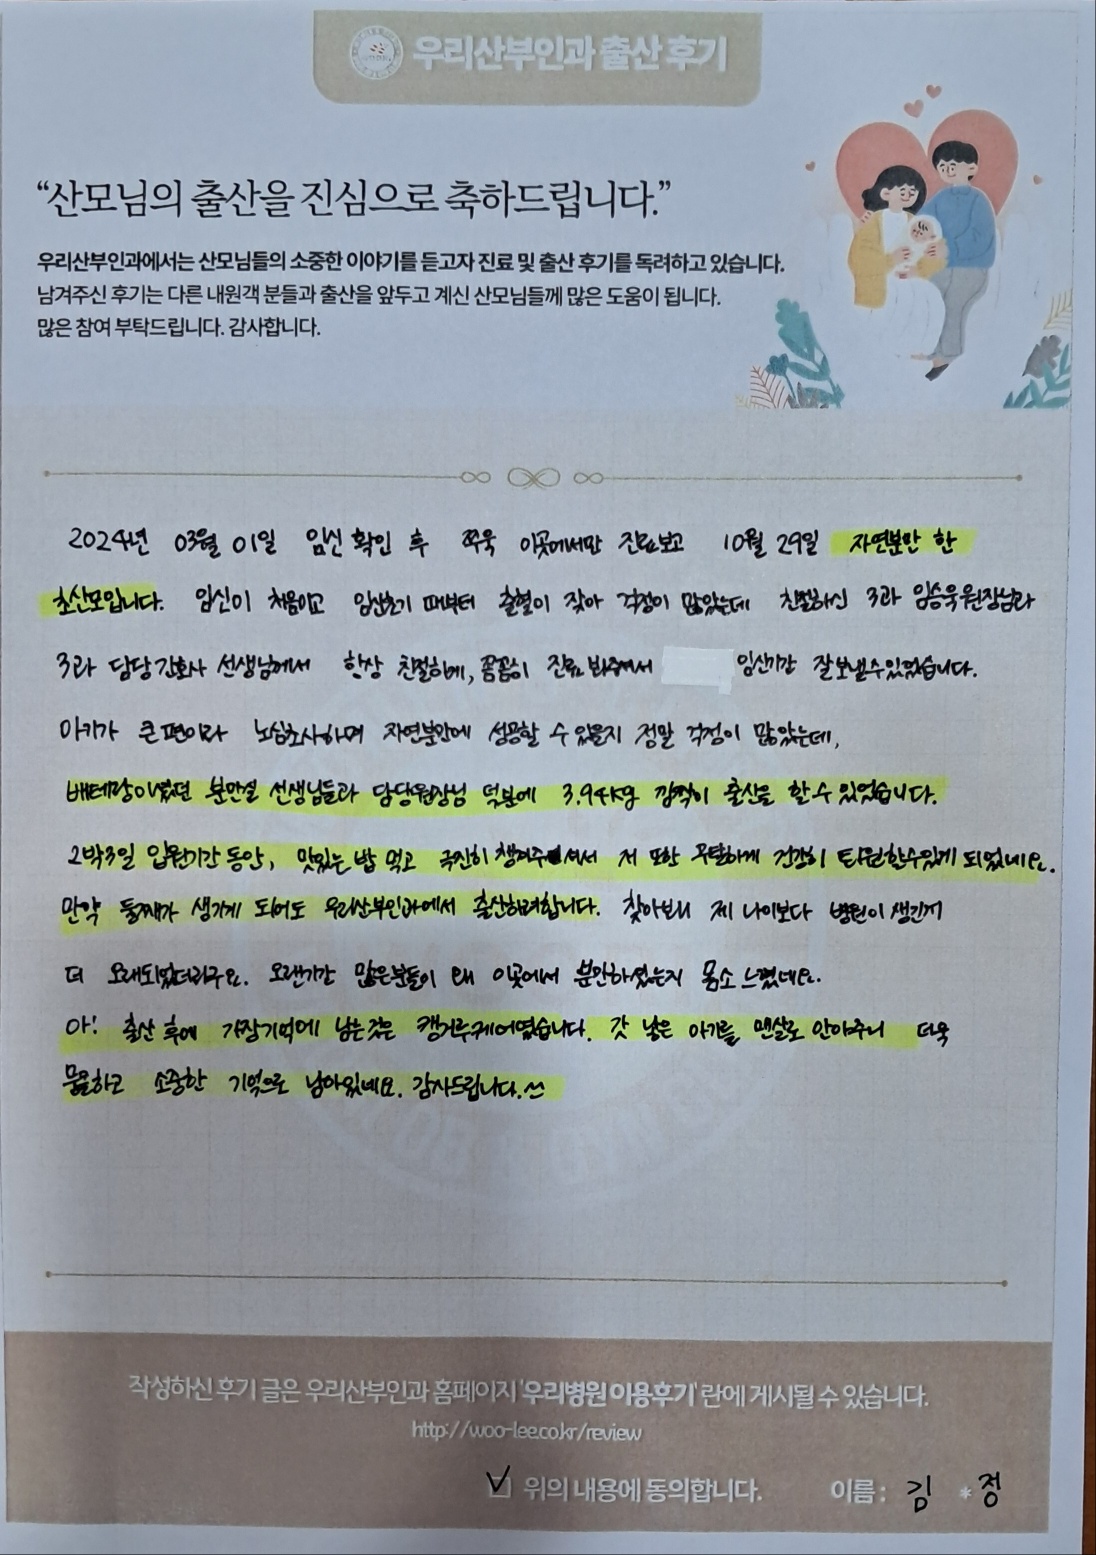 우리산부인과 출산 후기
“산모님의 출산을 진심으로 축하드립니다.”
우리산부인과에서는 산모님들의 소중한 이야기를 듣고자 진료 및 출산 후기를 독려하고 있습니다.
남겨주신 후기는 다른 내원객 분들과 출산을 앞두고 계신 산모님들께 많은 도움이 됩니다.
많은 참여 부탁드립니다. 감사합니다.
2024년 03월 01일 임신 확인 후 쭈욱 이곳에서만 진료보고 10월 29일 자연분만 한
초산모입니다. 임신이 처음이고 임신초기 때부터 출혈이 잦아 걱정이 많았는데 친절하신 3과 임승욱원장님과
3과 담당간호사 선생님께서 항상 친절하게, 꼼꼼히 진료 봐주셔서 임신기간 잘보낼수있었습니다.
아기가 큰편이라 노심초사하며 자연분만에 성공할 수 있을지 정말 걱정이 많았는데,
베테랑이셨던 분만실 선생님들과 담당원장님 덕분에 3.94kg 깜찍이 출산을 할수있었습니다.
2박3일 입원기간동안, 맛있는밥 먹고 극진히 챙겨주셔서 저 또한 무탈하게 건강히 퇴원할수있게 되었네요.
만약 둘째가 생기게 되어도 우리산부인과에서 출산하려합니다. 찾아보니 제 나이보다 병원이생긴게
더 오래되었더라구요. 오랜기간 많은분들이 왜 이곳에서 분만하셨는지 몸소 느꼈네요.
아! 출산 후에 가장기억에 남는것은 캥거루케어였습니다. 갓 낳은 아기를 맨살로 안아주니 더욱
뭉클하고 소중한 기억으로 남아있네요. 감사드립니다.
작성하신 후기 글은 우리산부인과 홈페이지 '우리병원 이용후기' 란에 게시될 수 있습니다.
http://woo-lee.co.kr/review
위의 내용에 동의합니다. 이름 : 김 *정